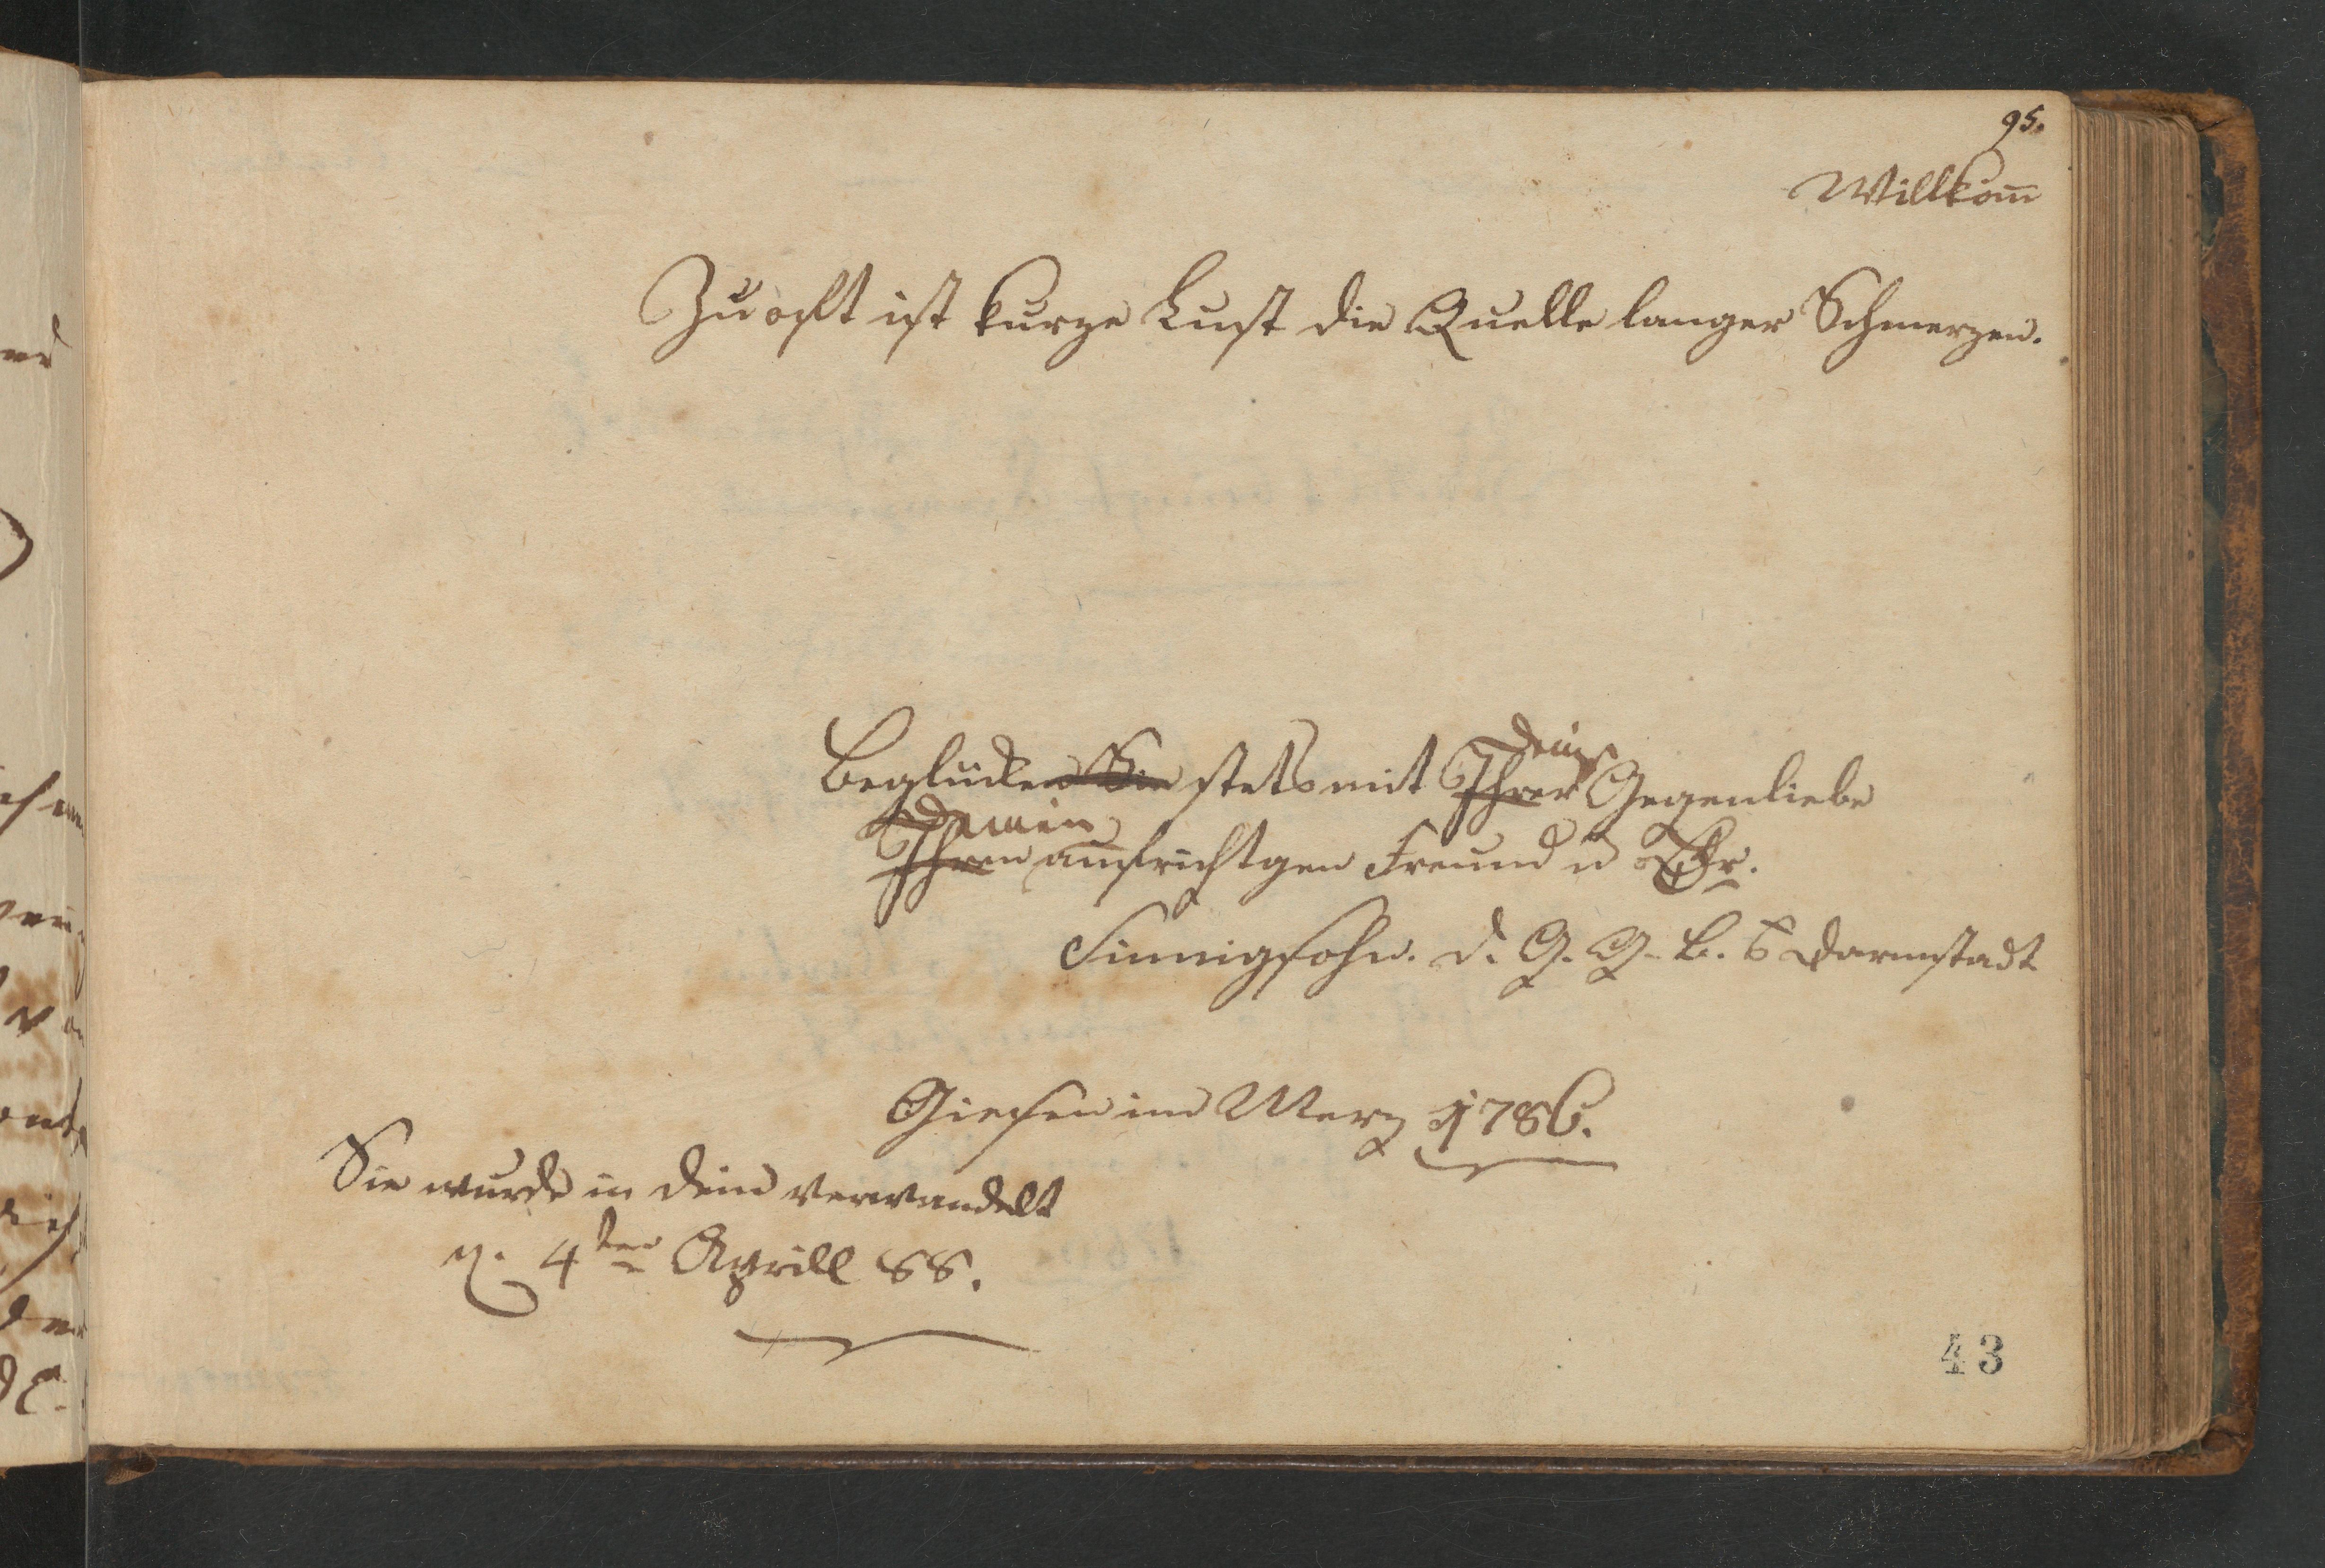 95.
Willkom̅
Zu oft ist kurze Lust die Quelle langer Schmerzen.
deiner
Beglücken Sie stets mit Ihrer Gegenliebe
Deinen
Ihren aufrichtgen Freund u
Sinnigsohn. d. G. G. B. S Darmstadt
Giesen im Merz 1786.
Sie wurde in dein verwandelt
d. 4ten Aprill 88.
43